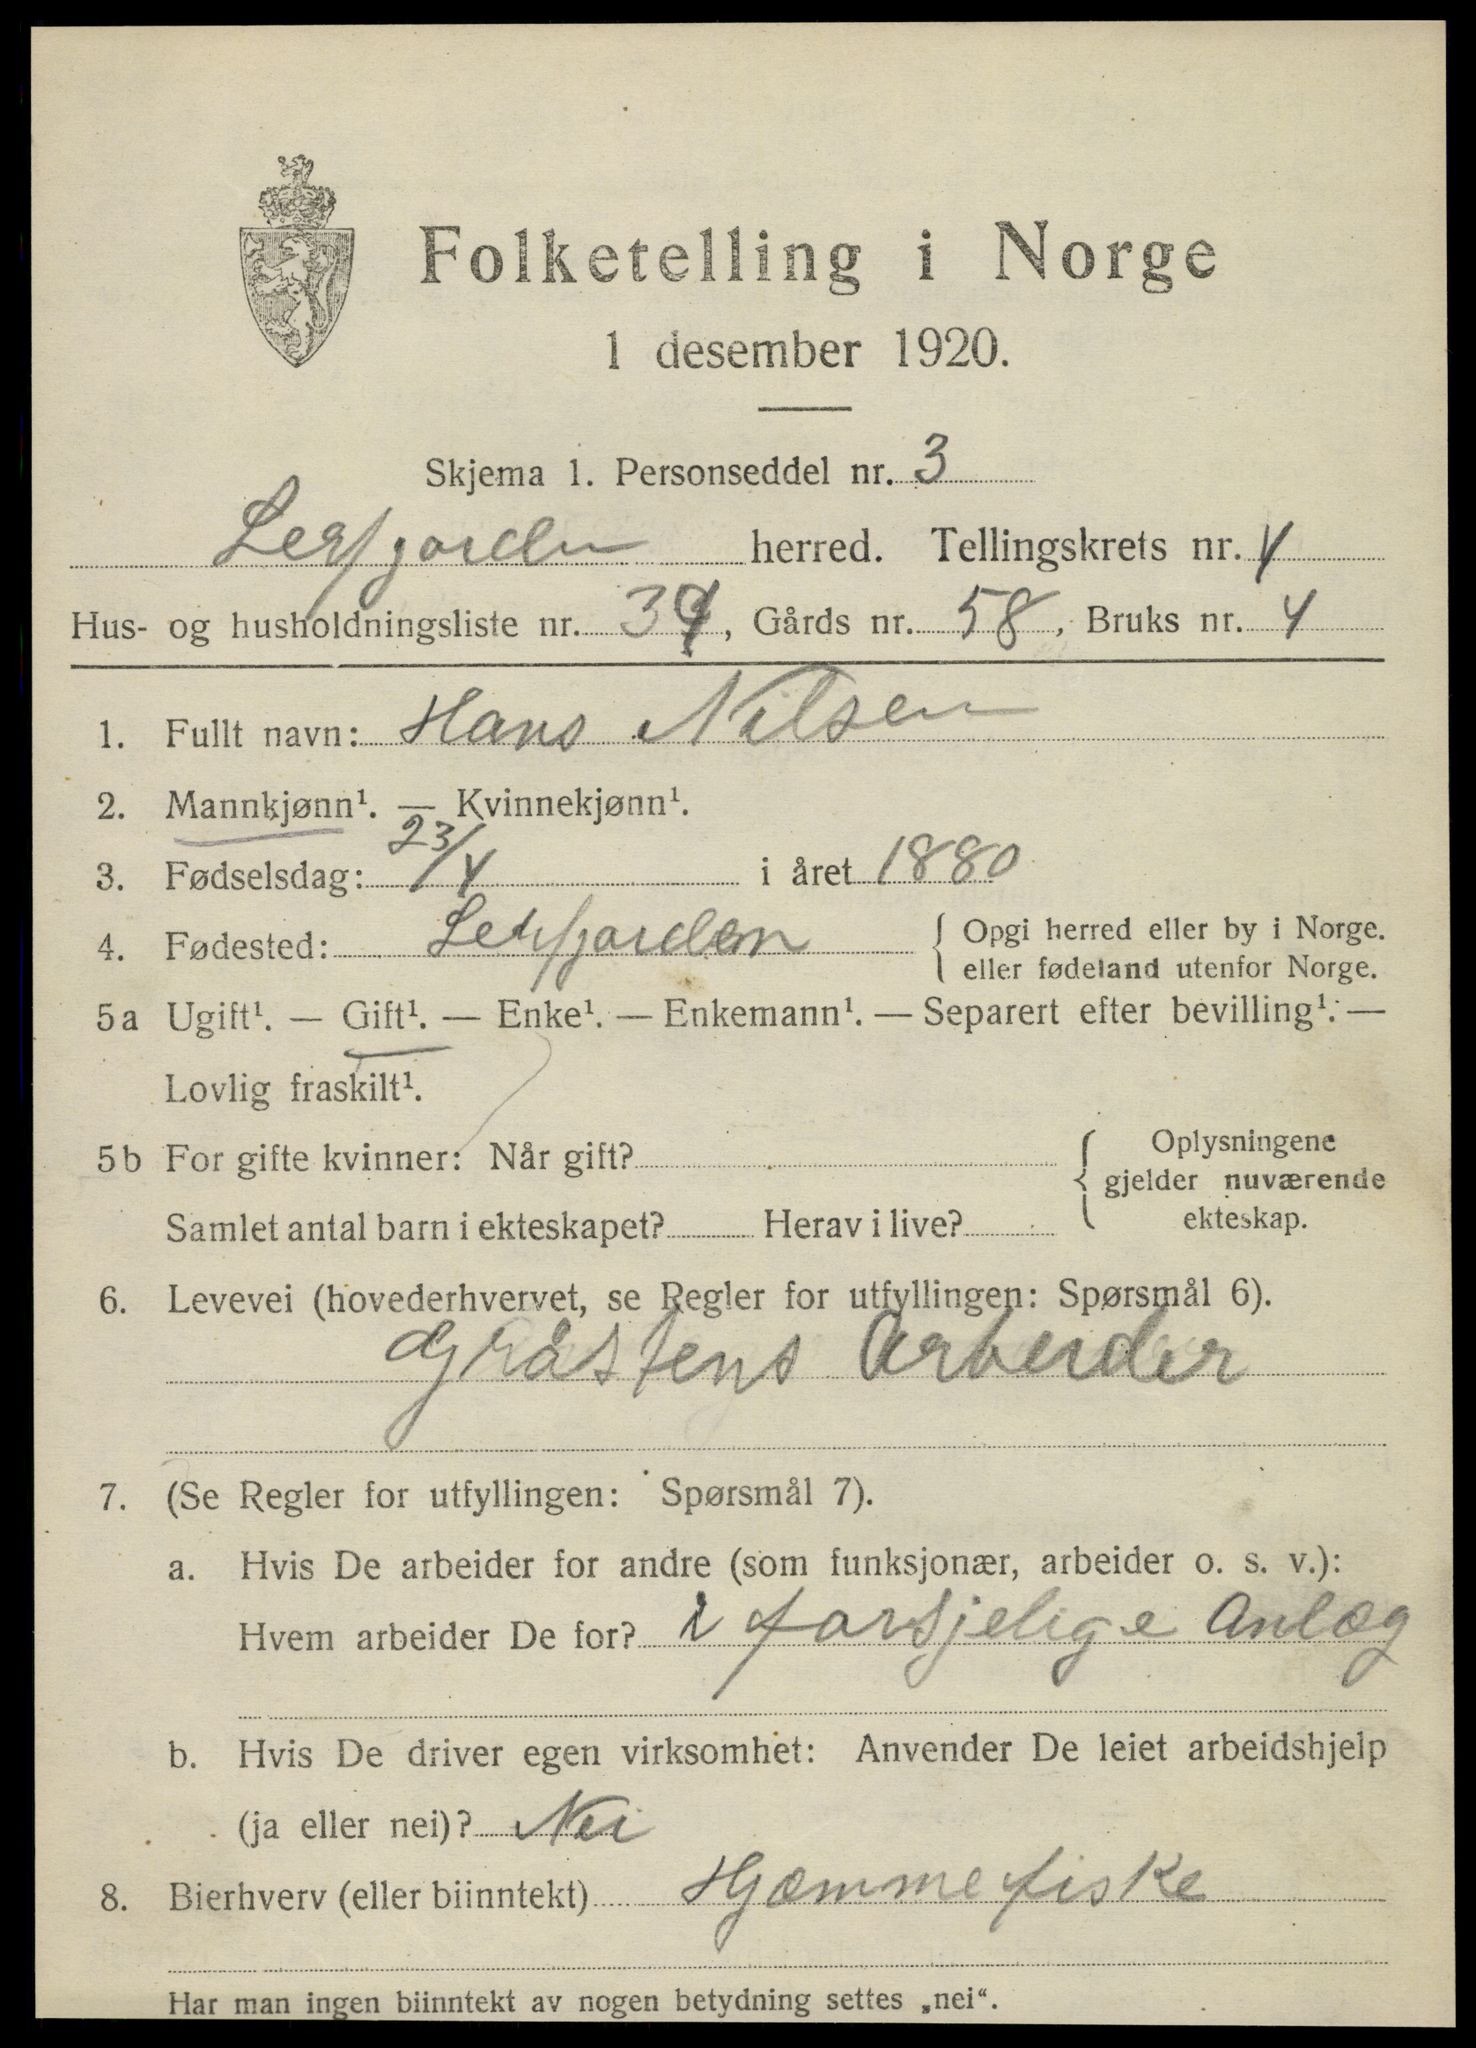 Folketelling i Norge
1 desember 1920.
Skjema 1. Personseddel nr. 3
Leirfjorden herred. Tellingskrets nr. 4
Hus- og husholdningsliste nr. 39, Gårds nr. 58, Bruks nr. 4
1. Fullt navn: Hans Nilsen
2. Mannkjønn¹. — Kvinnekjønn¹.
3. Fødselsdag: 23/4 i året 1880
4. Fødested: Leirfjorden { Opgi herred eller by i Norge.
eller fødeland utenfor Norge.
5a Ugift¹. — Gift¹. — Enke¹. — Enkemann¹. — Separert efter bevilling¹. —
Lovlig fraskilt¹.
5b For gifte kvinner: Når gift? { Oplysningene
gjelder nuværende
Samlet antal barn i ekteskapet? Herav i live? ekteskap.
6. Levevei (hovederhvervet, se Regler for utfyllingen: Spørsmål 6).
Gråstens Arbeider
7. (Se Regler for utfyllingen: Spørsmål 7).
a. Hvis De arbeider for andre (som funksjonær, arbeider o. s. v.):
Hvem arbeider De for? i forsjelige Anlæg
b. Hvis De driver egen virksomhet: Anvender De leiet arbeidshjelp
(ja eller nei)? Nei
8. Bierhverv (eller biinntekt) Hjæmmefiske
Har man ingen biinntekt av nogen betydning settes „nei“.